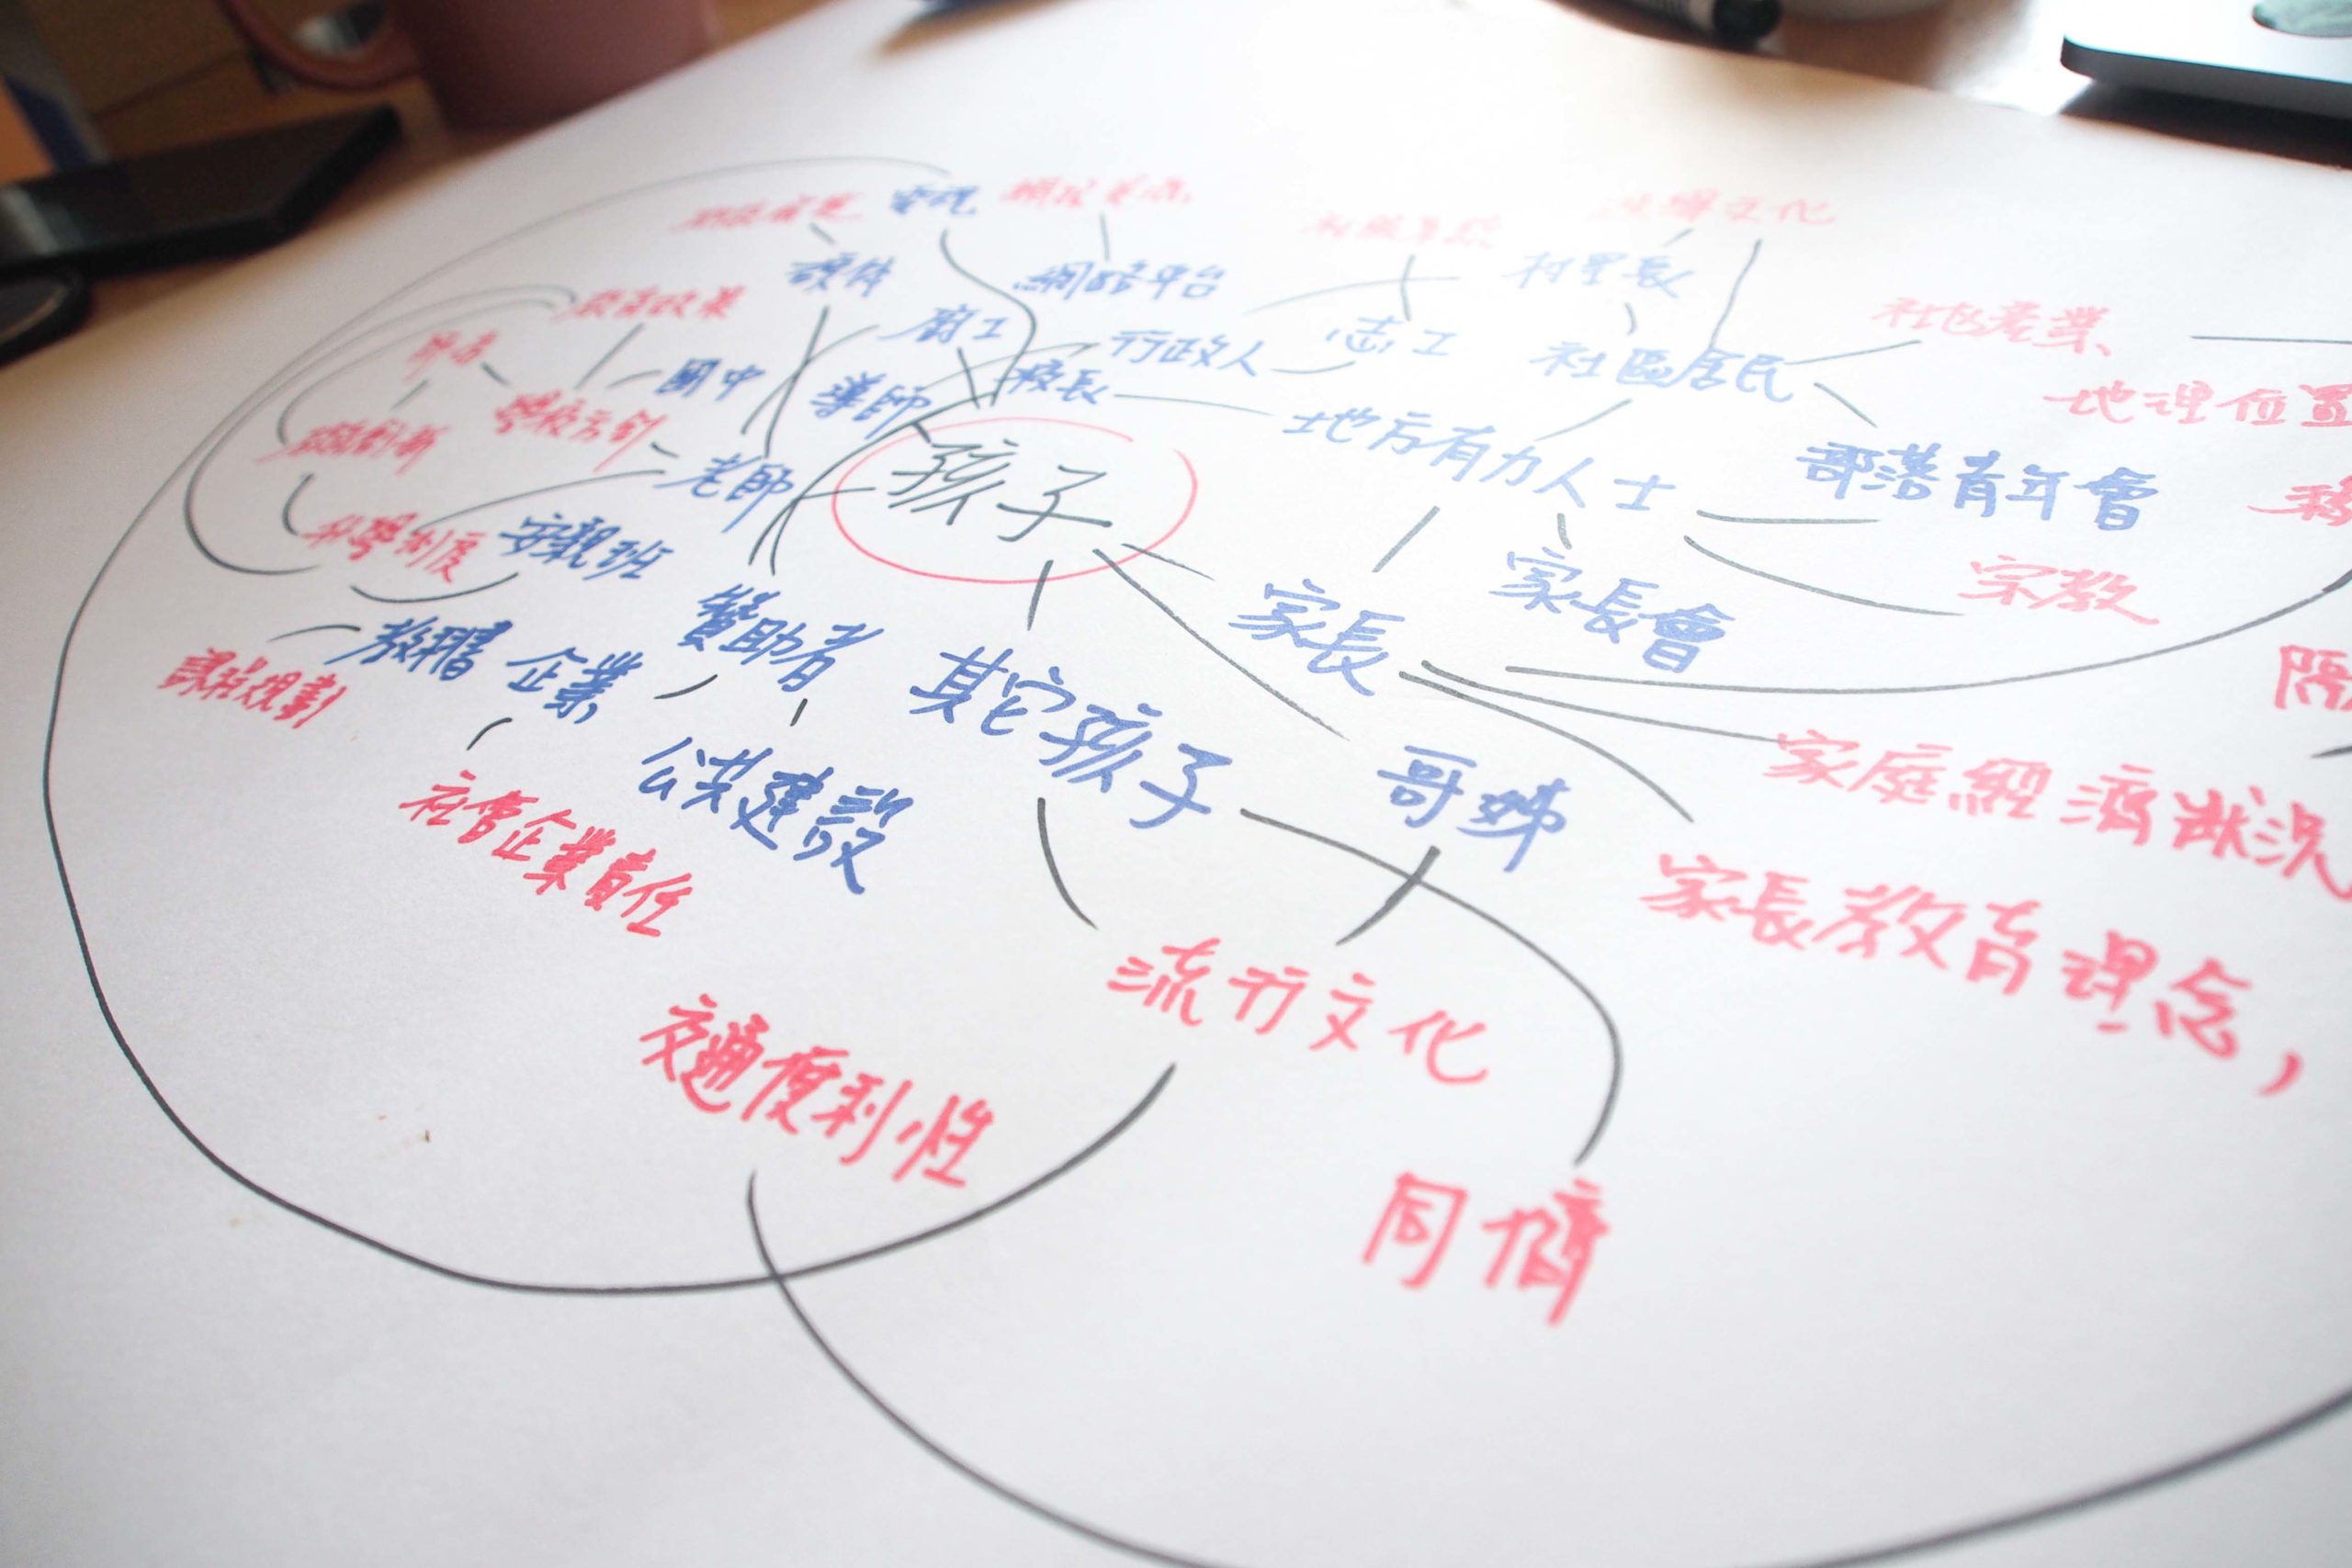 電視
硬件
網路平台
村里長
廚工
行政人
志工
社區居民
社區產業
地理位置
教育政策
國中
導師
校長
地方有力人士
部落青年會
老師
孩子
宗教
升學制度
安親班
家長
家長會
課程規劃
企業
贊助者
其它孩子
哥姊
家庭經濟狀況
公共建設
社會企業責任
家長教育理念,
流行文化
交通便利性
同儕